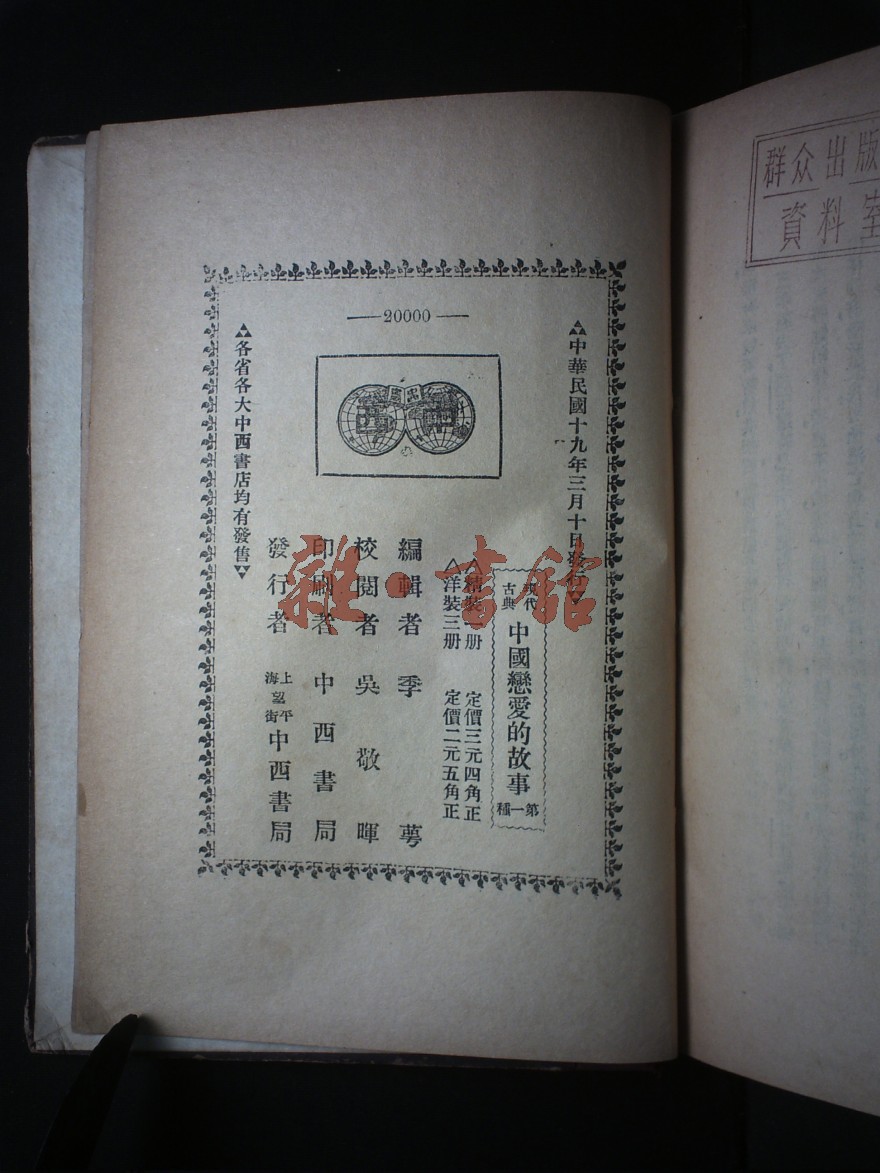 —20000—
▲中華民國十九年三月十日發行▼
現代
古典
中國戀愛的故事
第一種
精裝一册 定價三元四角正
洋裝三册 定價二元五角正
編輯者 季萼
校閱者 吳敬暉
印刷者 中西書局
發行者 上海望平街 中西書局
▲各省各大中西書店均有發售▼
雜·書館
群众出版
資料室